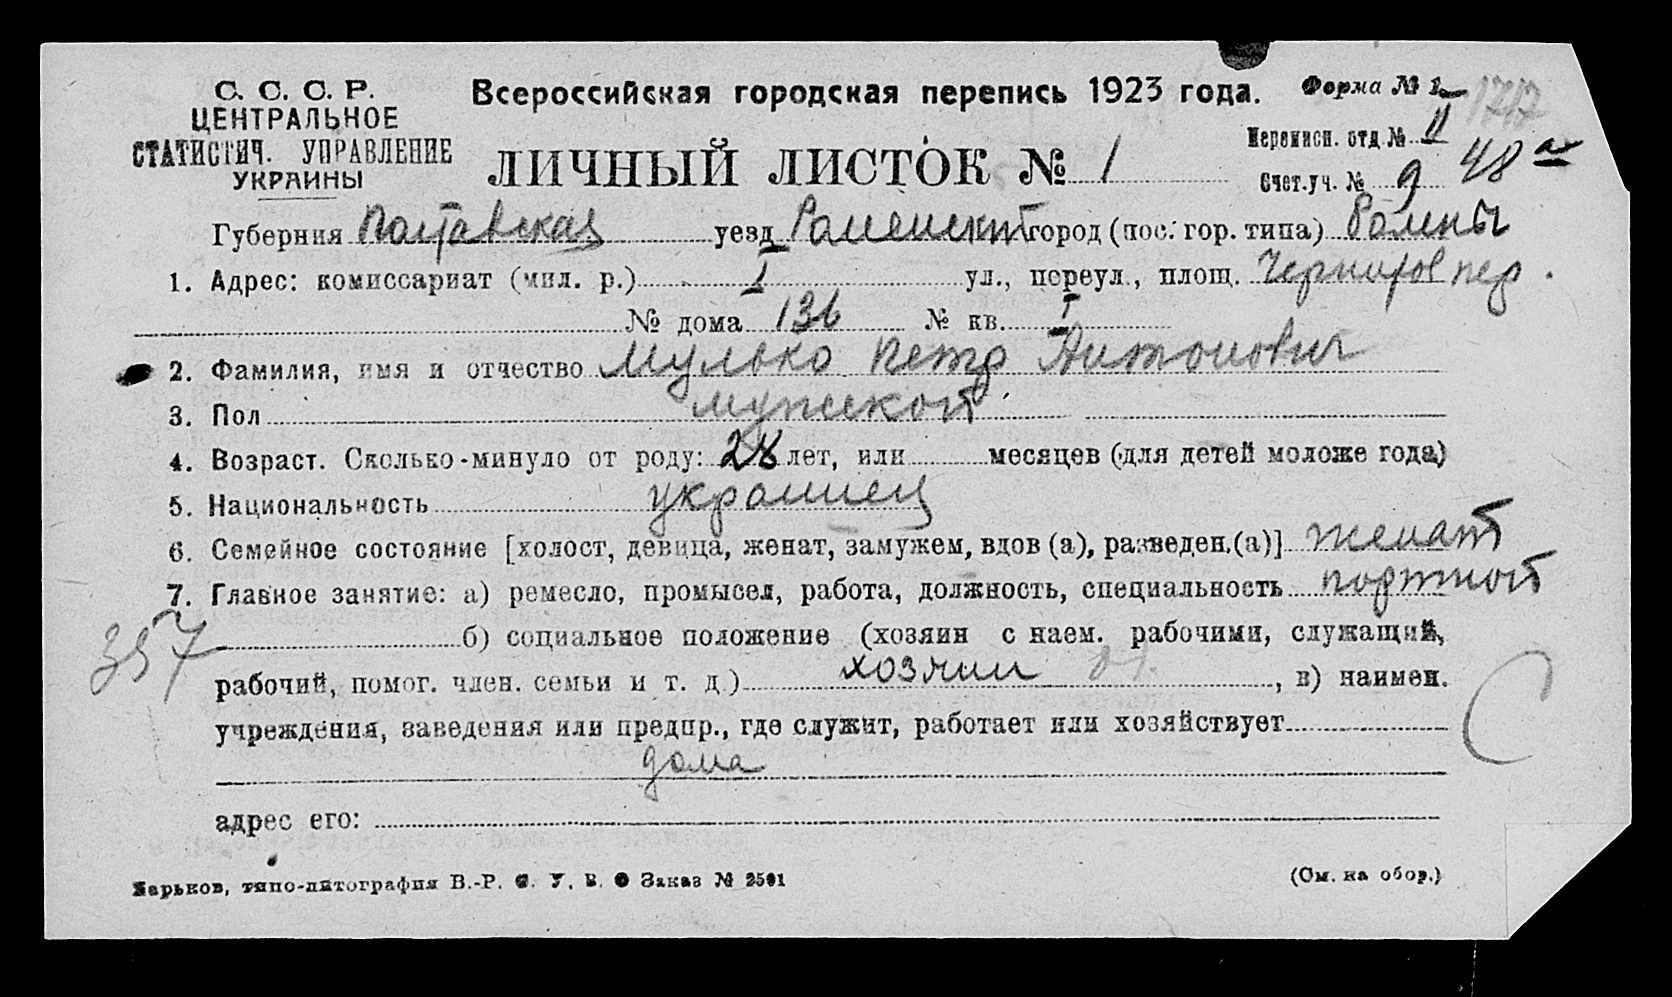 С. С. С. Р.
ЦЕНТРАЛЬНОЕ
СТАТИСТИЧ. УПРАВЛЕНИЕ
УКРАИНЫ
Всероссийская городская перепись 1923 года.
Форма № 1
1717
ЛИЧНЫЙ ЛИСТОК № 1
Переписн. отд. № II
Счет. уч. № 9
48 а
Губерния Полтавская уезд Роменский город (пос. гор. типа) Ромны
1. Адрес: комиссариат (мил. р.) I ул., переул., площ. Чернигов пер.
№ дома 136 № кв. I
2. Фамилия, имя и отчество Мулько Петр Антонович
3. Пол мужской
4. Возраст. Сколько минуло от роду: 28 лет, или месяцев (для детей моложе года)
5. Национальность украинец
6. Семейное состояние [холост, девица, женат, замужем, вдов (а), разведен. (а)] женат
7. Главное занятие: а) ремесло, промысел, работа, должность, специальность портной
357
б) социальное положение (хозяин с наем. рабочими, служащий,
рабочий, помог. член. семьи и т. д.) хозяин , в) наимен.
учреждения, заведения или предпр., где служит, работает или хозяйствует
дома
адрес его:
Харьков, типо-литография В.-Р. С. У. В. Заказ № 2591
(См. на обор.)